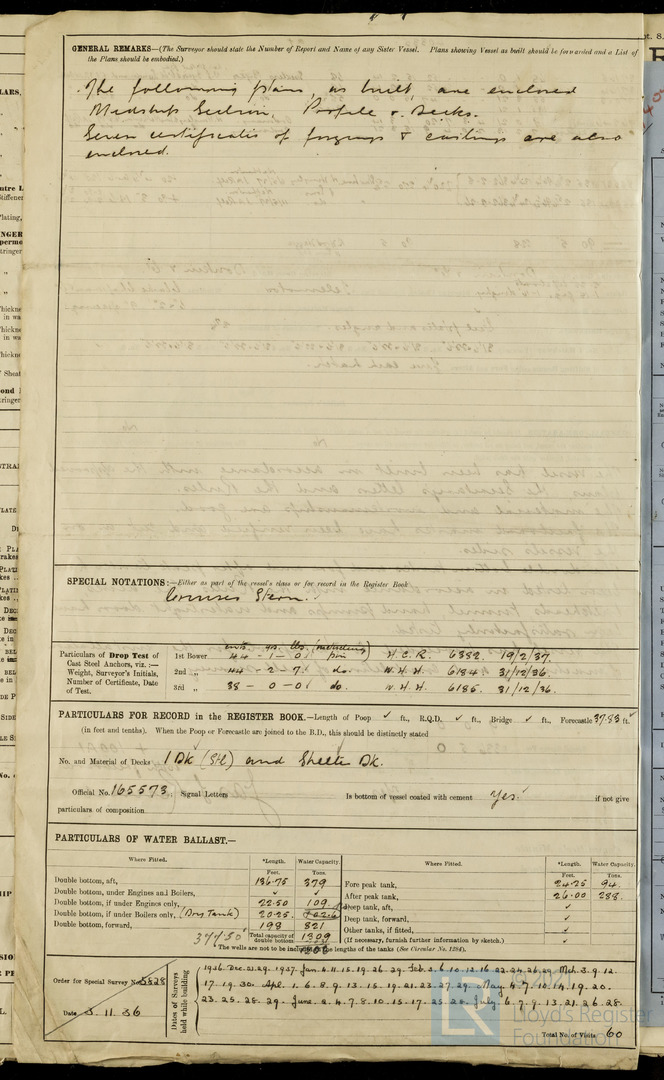 GENERAL REMARKS—(The Surveyor should state the Number of Report and Name of any Sister Vessel. Plans showing Vessel as built should be forwarded and a List of
the Plans should be embodied.)
The following plans, as built, are enclosed
Midship Section, Profile & Decks.
Seven certificates of forgings & castings are also
enclosed.
SPECIAL NOTATIONS:—Either as part of the vessel's class or for record in the Register Book
Cruiser Stern.
cwts. qrs. lbs. (including
Particulars of Drop Test of 1st Bower 44 - 1 - 0 pin) H.C.R. 6382. 19/2/37.
Cast Steel Anchors, viz. :—
Weight, Surveyor's Initials, 2nd „ 44 - 2 - 7 do. W.H.H. 6184 31/12/36.
Number of Certificate, Date
of Test. 3rd „ 38 - 0 - 0 do. W.H.H. 6185. 31/12/36.
PARTICULARS FOR RECORD in the REGISTER BOOK.—Length of Poop ✓ ft., R.Q.D. ✓ ft., Bridge ✓ ft., Forecastle 37.83 ft.
(in feet and tenths). When the Poop or Forecastle are joined to the B.D., this should be distinctly stated
No. and Material of Decks 1 Dk (Stl) and Shelter Dk.
Official No. 165573 ; Signal Letters Is bottom of vessel coated with cement Yes. if not give
particulars of composition
PARTICULARS OF WATER BALLAST.—
Where Fitted. *Length. Water Capacity. Where Fitted. *Length. Water Capacity.
Feet. Tons. Feet. Tons.
Double bottom, aft, 136.75 379 Fore peak tank, 24.25 94.
Double bottom, under Engines and Boilers, ✓ ✓ After peak tank, 26.00 288.
Double bottom, if under Engines only, 22.50 109 Deep tank, aft, ✓
Double bottom, if under Boilers only, (Dry Tank) 20.25 Deep tank, forward, ✓
Double bottom, forward, 198 821 Other tanks, if fitted, ✓
377.50 Total capacity of double bottom 1309 (If necessary, furnish further information by sketch.) ✓
The wells are not to be included in the lengths of the tanks (See Circular No. 1284).
Order for Special Survey No. 5828
Date 3.11.36
Dates of Surveys held while building
1936. Dec. 21. 29. 1937. Jan. 4. 11. 15. 19. 26. 29. Feb. 3. 6. 10. 12. 16. 22. 24. 26. 29. Mch. 3. 9. 12.
17. 19. 30. Apl. 1. 6. 8. 9. 13. 15. 19. 21. 23. 27. 29. May 4. 7. 10. 14. 19. 20.
23. 25. 28. 29. June 2. 4. 7. 8. 10. 15. 17. 25. 28. July 6. 7. 9. 13. 21. 26. 28.
Total No. of Visits 60
Lloyd's Register
Foundation